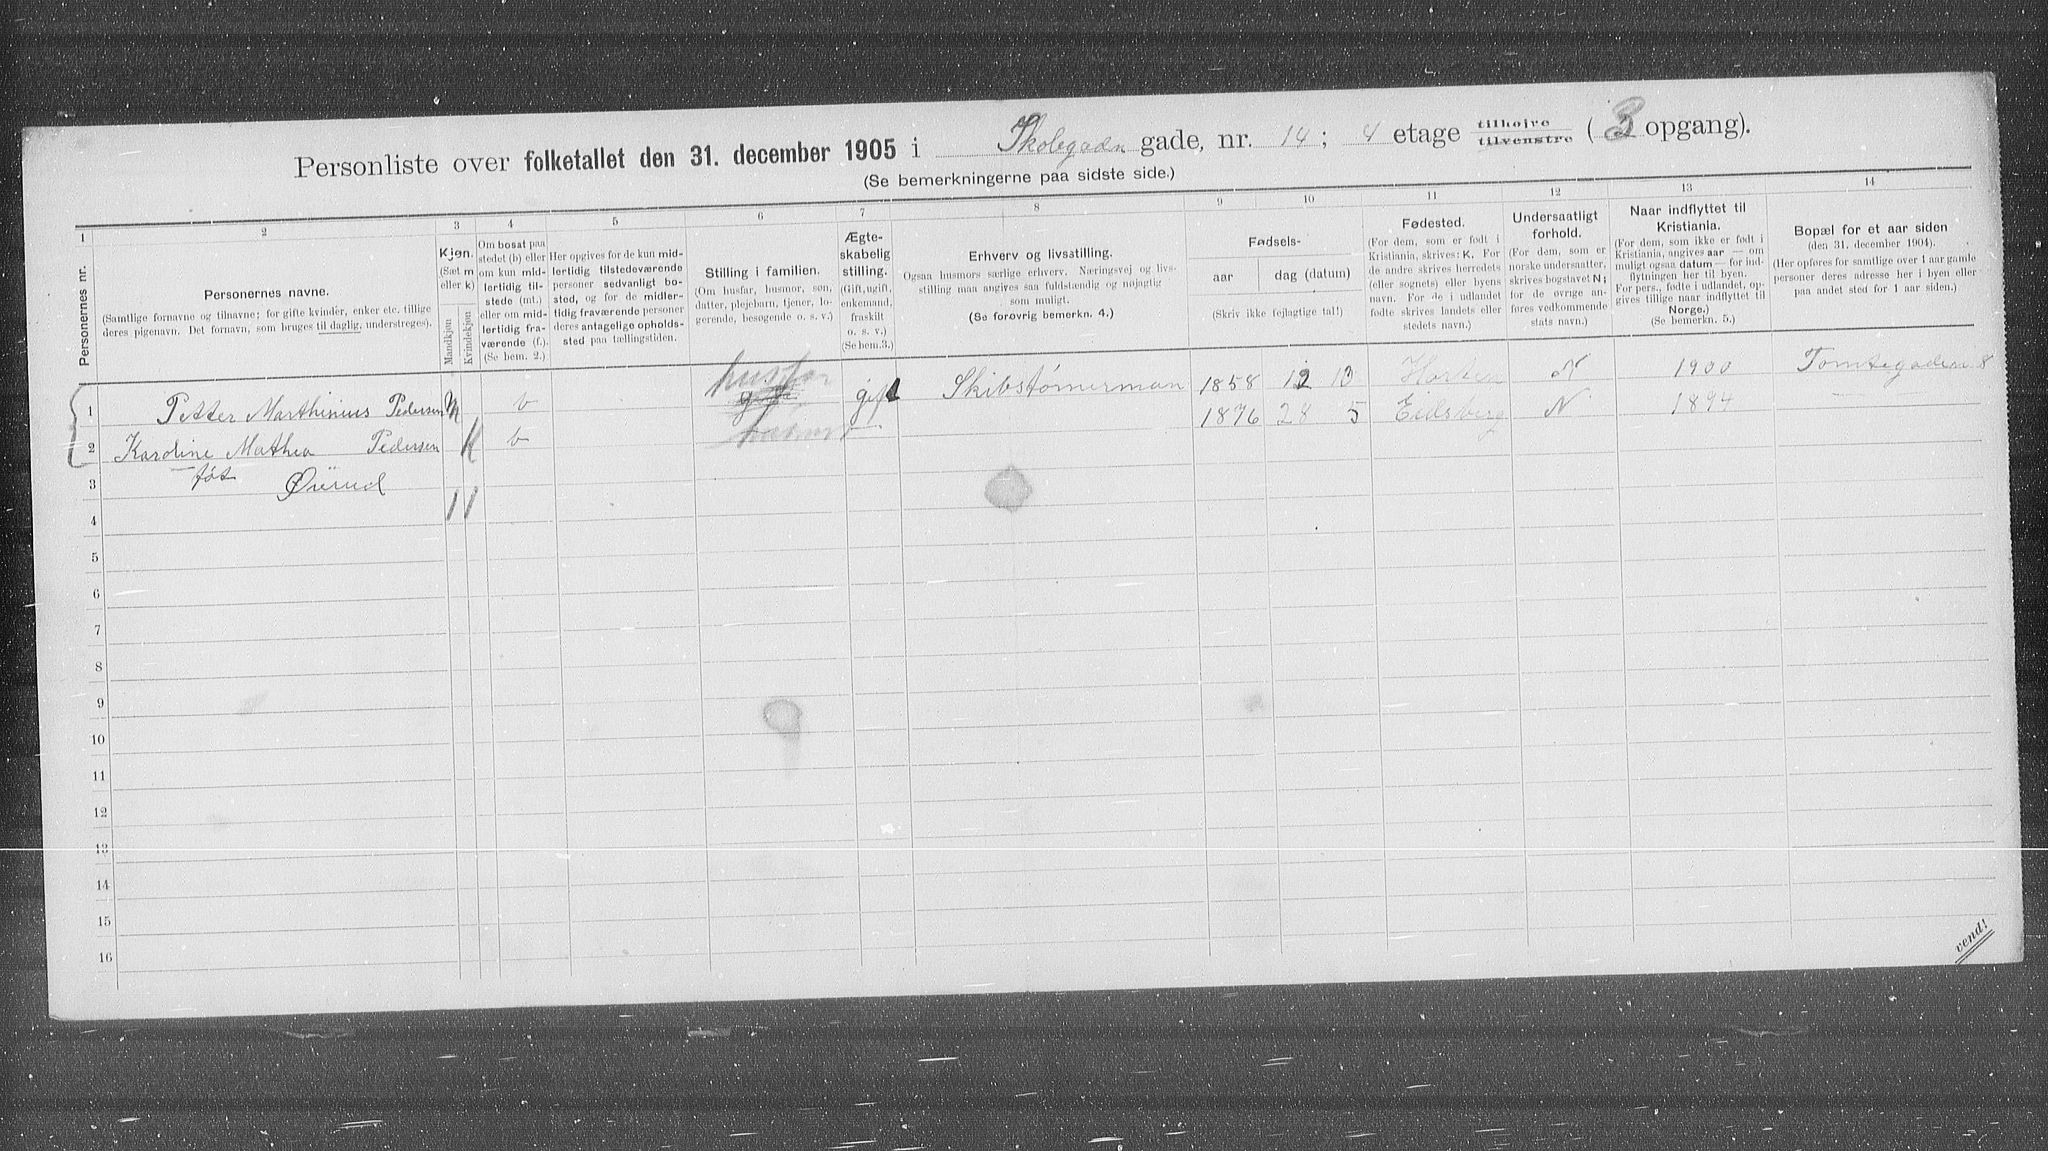 Personliste over folketallet den 31. december 1905 i Skolegaden gade, nr. 14; 4 etage tilhøjre tilvenstre (3 opgang).
(Se bemerkningerne paa sidste side.)
1 2 3 4 5 6 7 8 9 10 11 12 13 14
Personernes nr.
Personernes navne.
(Samtlige fornavne og tilnavne; for gifte kvinder, enker etc. tillige
deres pigenavn. Det fornavn, som bruges til daglig, understreges).
Kjøn.
(Sæt m
eller k)
Mandkjøn
Kvindekjøn
Om bosat paa
stedet (b) eller
om kun mid-
lertidig til-
stede (mt.)
eller om mid-
lertidig fra-
værende (f.).
(Se bem. 2.)
Her opgives for de kun mid-
lertidig tilstedeværende
personer sedvanligt bo-
sted, og for de midler-
tidig fraværende personer
deres antagelige opholds-
sted paa tællingstiden.
Stilling i familien.
(Om husfar, husmor, søn,
datter, plejebarn, tjener, lo-
gerende, besøgende o. s. v.)
Ægte-
skabelig
stilling.
(Gift, ugift,
enkemand,
fraskilt
o. s. v.)
(Se bem.3.)
Erhverv og livsstilling.
Ogsaa husmors særlige erhverv. Næringsvej og livs-
stilling maa angives saa fuldstændig og nøjagtig
som muligt.
(Se forøvrig bemerkn. 4.)
Fødsels-
aar
dag (datum)
(Skriv ikke fejlagtige tal!)
Fødested.
(For dem, som er født i
Kristiania, skrives: K. For
de andre skrives herredets
(eller sognets) eller byens
navn. For de i udlandet
fødte skrives landets eller
stedets navn.)
Undersaatligt
forhold.
(For dem, som er
norske undersaatter,
skrives bogstavet N;
for de øvrige an-
føres vedkommende
stats navn.)
Naar indflyttet til
Kristiania.
(For dem, som ikke er født i
Kristiania, angives aar — om
muligt ogsaa datum — for ind-
flytningen her til byen.
For pers., fødte i udlandet, op-
gives tillige naar indflyttet til
Norge.)
(Se bemerkn. 5.)
Bopæl for et aar siden
(den 31. december 1904).
(Her opføres for samtlige over 1 aar gamle
personer deres adresse her i byen eller
paa andet sted for 1 aar siden.)
1 Petter Marthinius Pedersen m b husfar gift Skibstømerman 1858 12 13 Horten N 1900 Tomtegaden 8
2 Karoline Mathea Pedersen k b husmor 1876 28 5 Eidsberg N 1894
3 føt Øierud
4
5
6
7
8
9
10
11
12
13
14
15
16
vend!